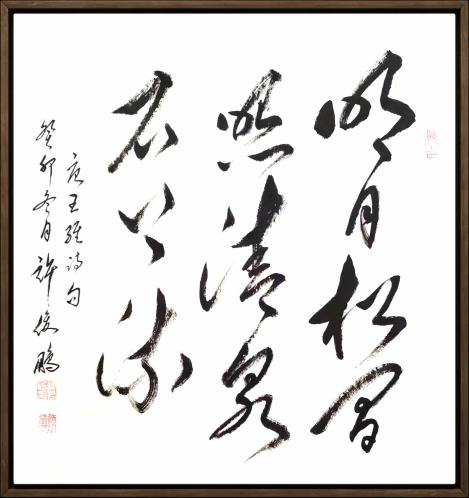 明月松間
照清泉
石上流
唐王维诗句
癸卯冬月許俊鵬